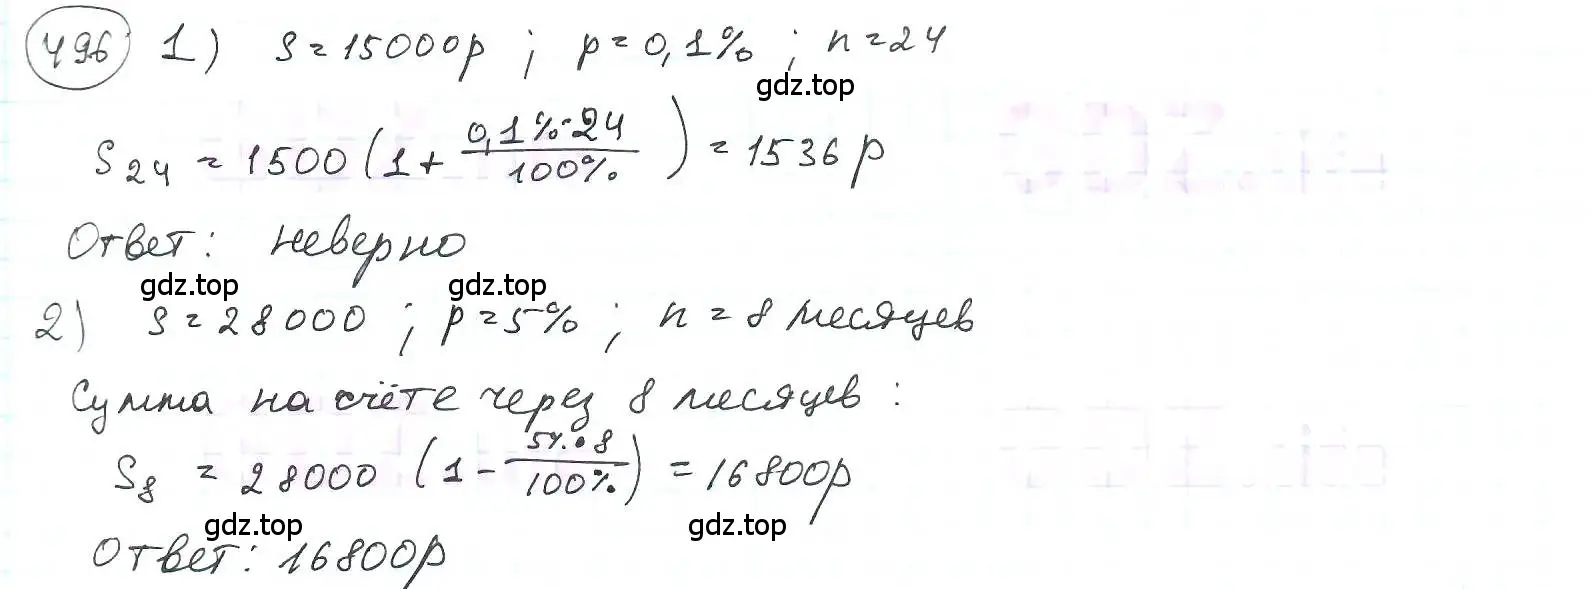 496 1) S = 15000р ; p = 0,1% ; n = 24
gdz.top
S₂₄ = 1500 (1 + 0,1%·24 / 100%) = 1536 р
Ответ: неверно
gdz.top gdz.top
2) S = 28000 ; p = 5% ; n = 8 месяцев
Сумма на счёте через 8 месяцев :
S₈ = 28000 (1 - 5%·8 / 100%) = 16800р
gdz.top gdz.top
Ответ: 16800р